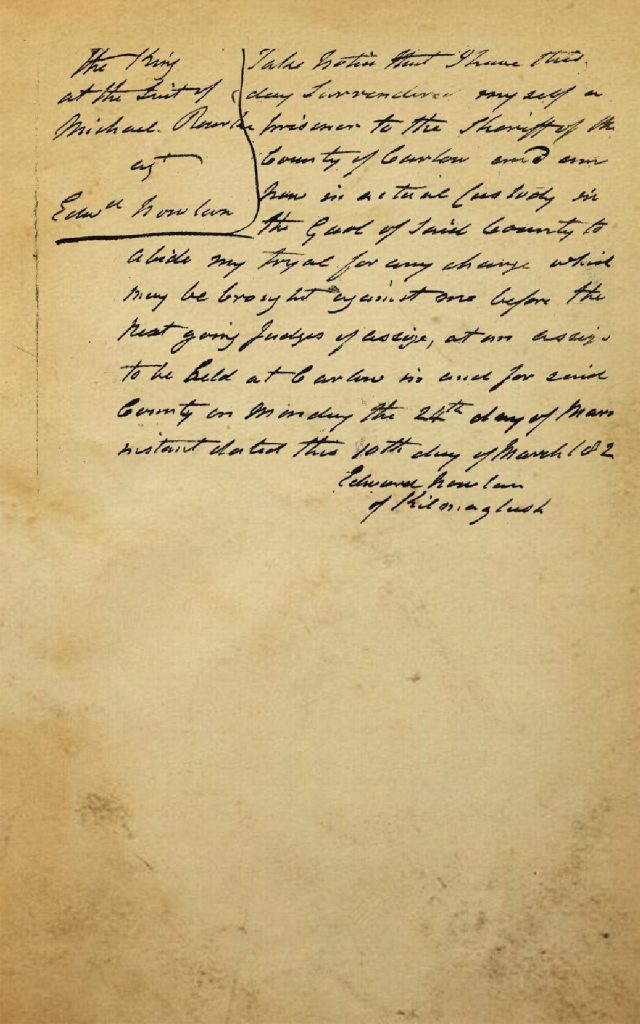 The King
at the Suit of
Michael Rourke
agt
Edwd Nowlan
Take Notice that I have this
day Surrendered myself a
prisoner to the Sheriff of the
County of Carlow and am
now in actual Custody in
the Gaol of Said County to
abide my tryal for any charge which
may be brought against me before the
next going Judges of assize, at an assize
to be held at Carlow in and for said
County on Monday the 24th day of March
instant dated this 10th day of March 182
Edward Nowlan
of Kilmaglush